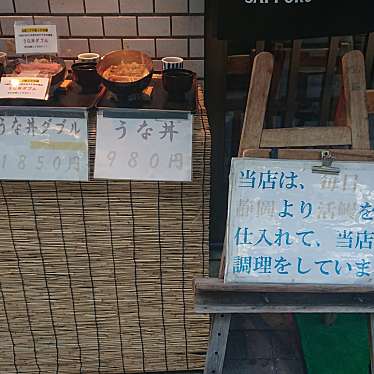 SAPPORO
うな丼ダブル
うな丼ダブル
1850円
うな丼
980円
当店は、毎日
静岡より活鰻を
仕入れて、当店
調理をしていま